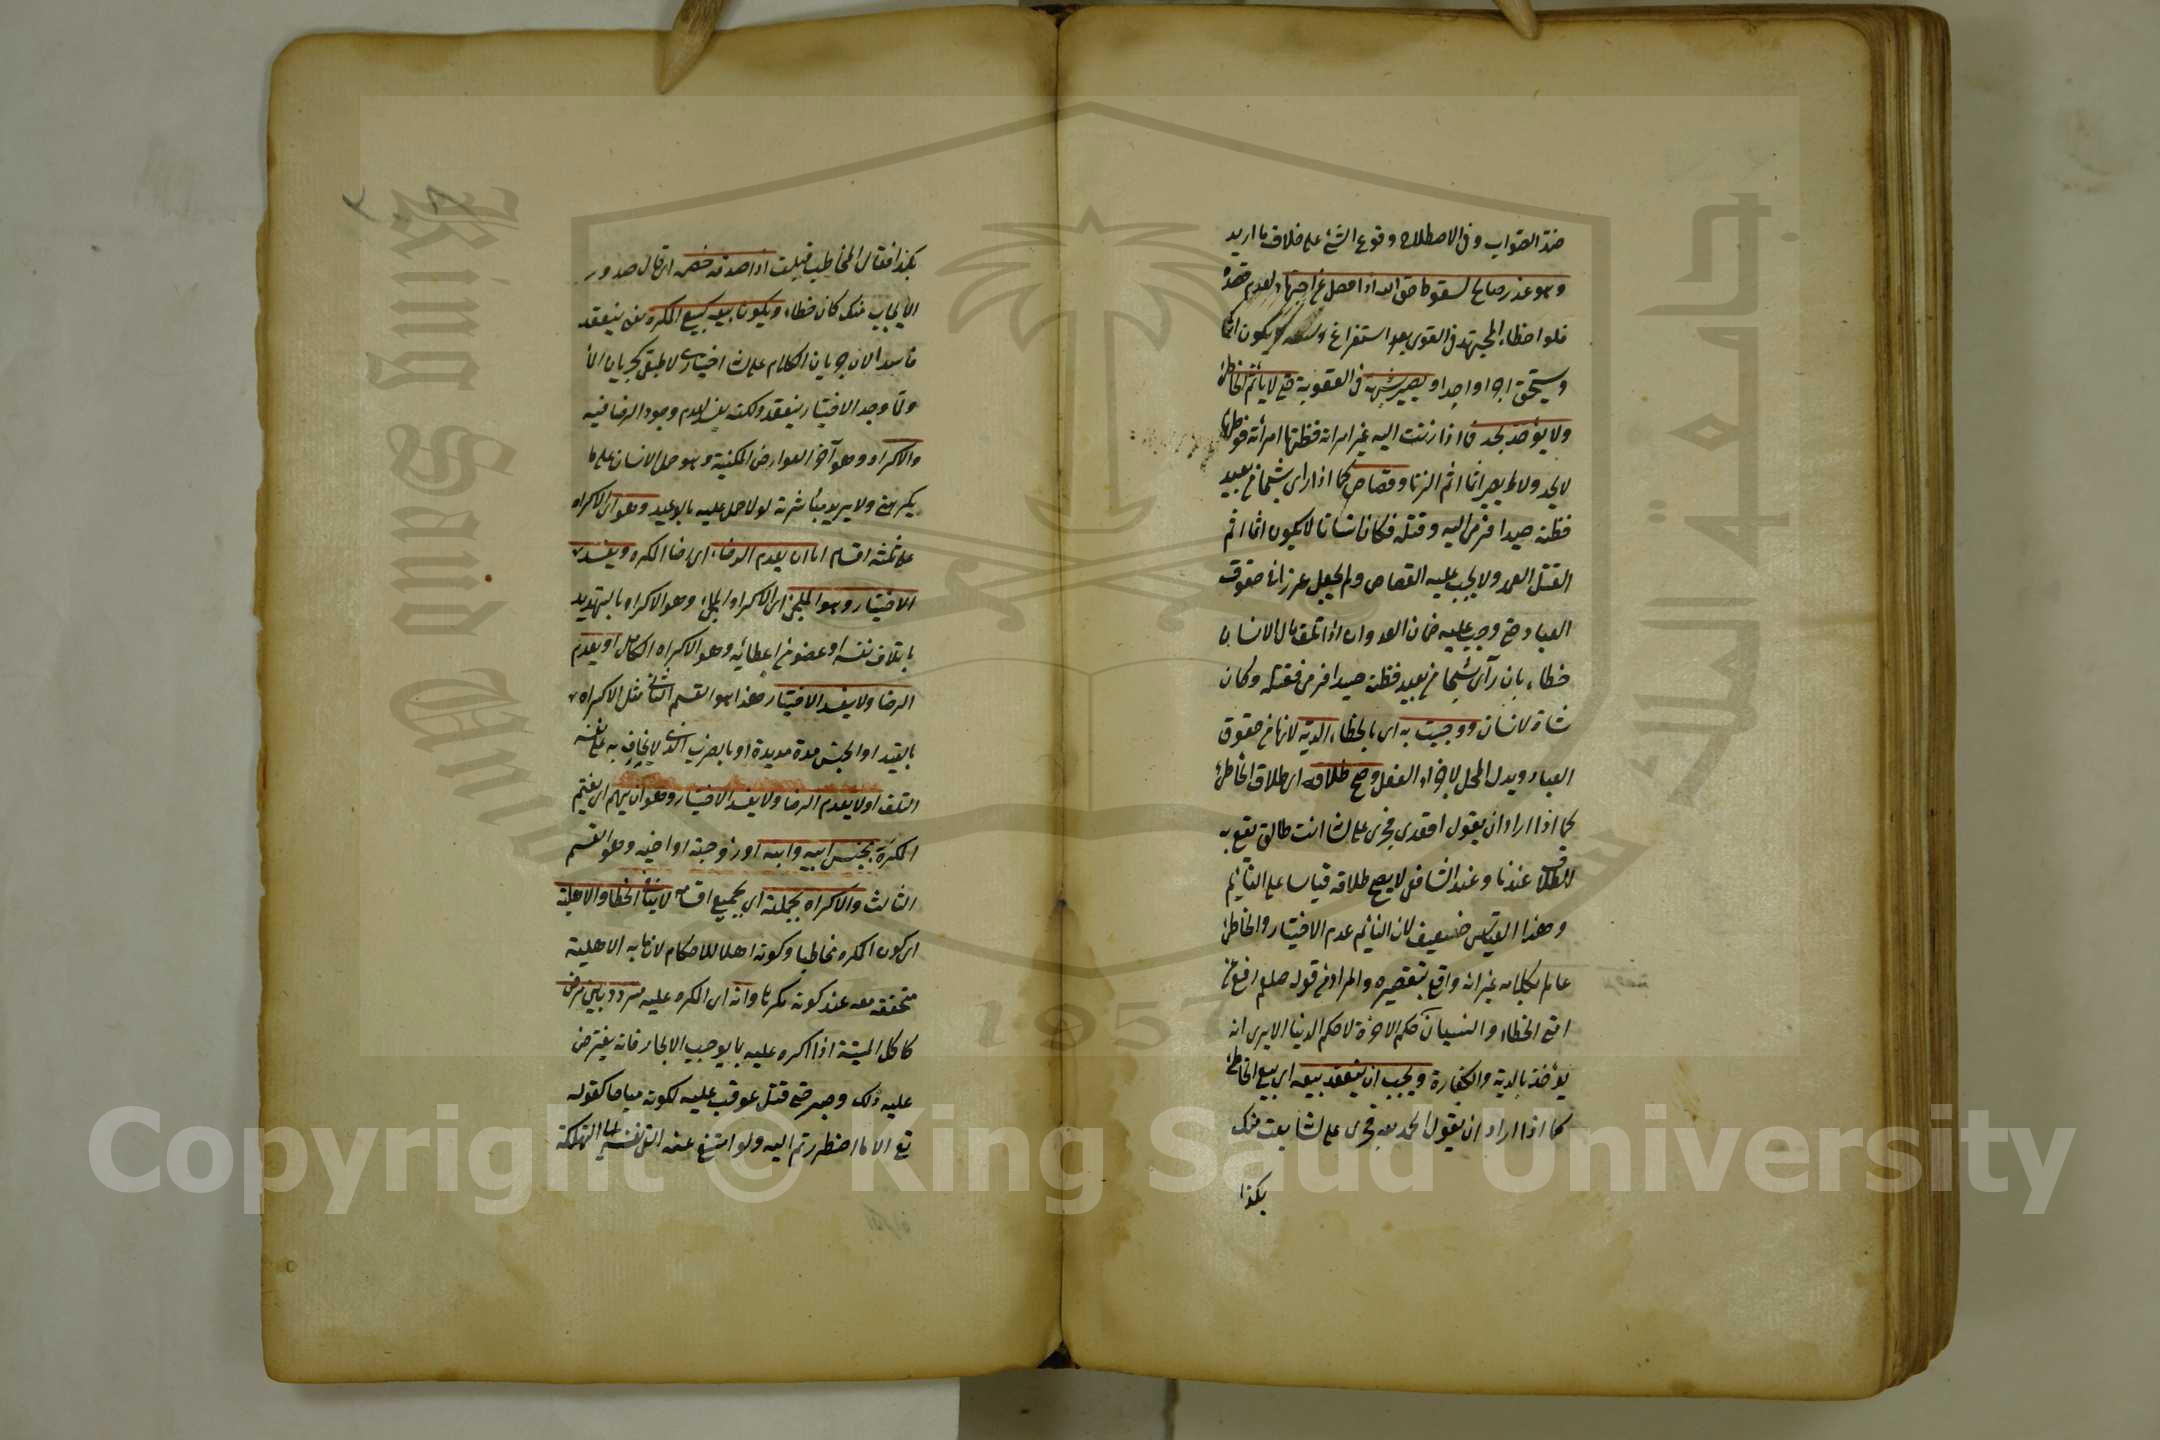 ضد الصواب وفي الاصطلاح وقوع الشئ على خلاف ما اريد
وهو عذر صالح لسقوط حق الله اذا حصل عن اجتهاد لعدم قصده
فلو اخطاء المجتهد في الفتوى بعد استفراغ وسعه لا يكون اثما
ويستحق اجرا واحدا ويصير شبهة في العقوبة حتى لا يأثم الخاطئ
ولا يؤخذ بحد فاذا زفت اليه غير امرأته فظنها امرأته فوطئها
لا يحد ولا يصير اثما اثم الزنا وقصاص كما اذا راى شبحا من بعيد
فظنه صيدا فرمى اليه وقتله فكان انسانا لا يكون اثما اثم
القتل العمد ولا يجب عليه القصاص ولم يجعل عذرا في حقوق
العباد حتى وجب عليه ضمان العدوان اذا تلف مال الانسان
خطاء بان رأى شبحا من بعيد فظنه صيدا فرمى فقتله وكان
شاة لانسان ووجبت به اى بالخطاء الدية لانها من حقوق
العباد وبدل المحل لا جزاء الفعل وصح طلاقه اى طلاق الخاطئ
كما اذا اراد ان يقول اقعدى فجرى على لسانه انت طالق يقع به
الطلاق عندنا وعند الشافعى لا يصح طلاقه قياسا على النائم
وهذا القياس ضعيف لان النائم عدم الاختيار والخاطئ
عالم بكلامه غير انه واقع بتقصيره والمراد من قوله صلعم رفع عن
امتى الخطاء والنسيان حكم الاخرة لا حكم الدنيا الا يرى انه
يؤخذ بالدية والكفارة ويجب ان ينعقد بيعه اى بيع الخاطئ
كما اذا اراد ان يقول الحمد لله فجرى على لسانه بعت منك
بكذا
بكذا فقال المخاطب قبلت اذا صدقه خصمه اى قال صدور
الايجاب منك كان خطاء ويكون بيعه كبيع المكره يعنى ينعقد
فاسدا لان جريان الكلام على لسانه اختيارى لا طبيعى كجريان الماء
ولما وجد الاختيار ينعقد ولكنه يفسد لعدم وجود الرضا فيه
والاكراه وهو آخر العوارض المكتسبة وهو حمل الانسان على ما
يكرهه ولا يريد مباشرته لولا الحمل عليه بالوعيد وهو اى الاكراه
على ثلثة اقسام اما ان يعدم الرضاء اى رضا المكره ويفسد
الاختيار وهو الملجئ اى الاكراه الملجئ وهو الاكراه بالتهديد
باتلاف نفسه او عضو من اعضائه وهو الاكراه الكامل او يعدم
الرضا ولا يفسد الاختيار هذا هو القسم الثانى مثل الاكراه
بالقيد او الحبس مدة مديدة او بالضرب الذى لا يخاف به على نفسه
التلف او لا يعدم الرضا ولا يفسد الاختيار وهو ان يهتم اى يغتم
المكره بحبس ابيه وابنه او زوجته او اخيه وهو القسم
الثالث والاكراه بجملته اى بجميع اقسامه لا ينافى الخطاب والاهلية
اى كون المكره مخاطبا وكونه اهلا للاحكام لان ما به الاهلية
متحققة معه عند كونه مكرها وانه اى المكره عليه متردد بين فرض
كاكل الميتة اذا اكره عليه بما يوجب الالجاء فانه يفترض
عليه ذلك ولو صبر حتى قتل عوقب عليه لكونه مباحا كقوله
تع الا ما اضطررتم اليه ولو امتنع عنه القى نفسه الى التهلكة
King Saud University
جامعة الملك سعود
1957
Copyright © King Saud University